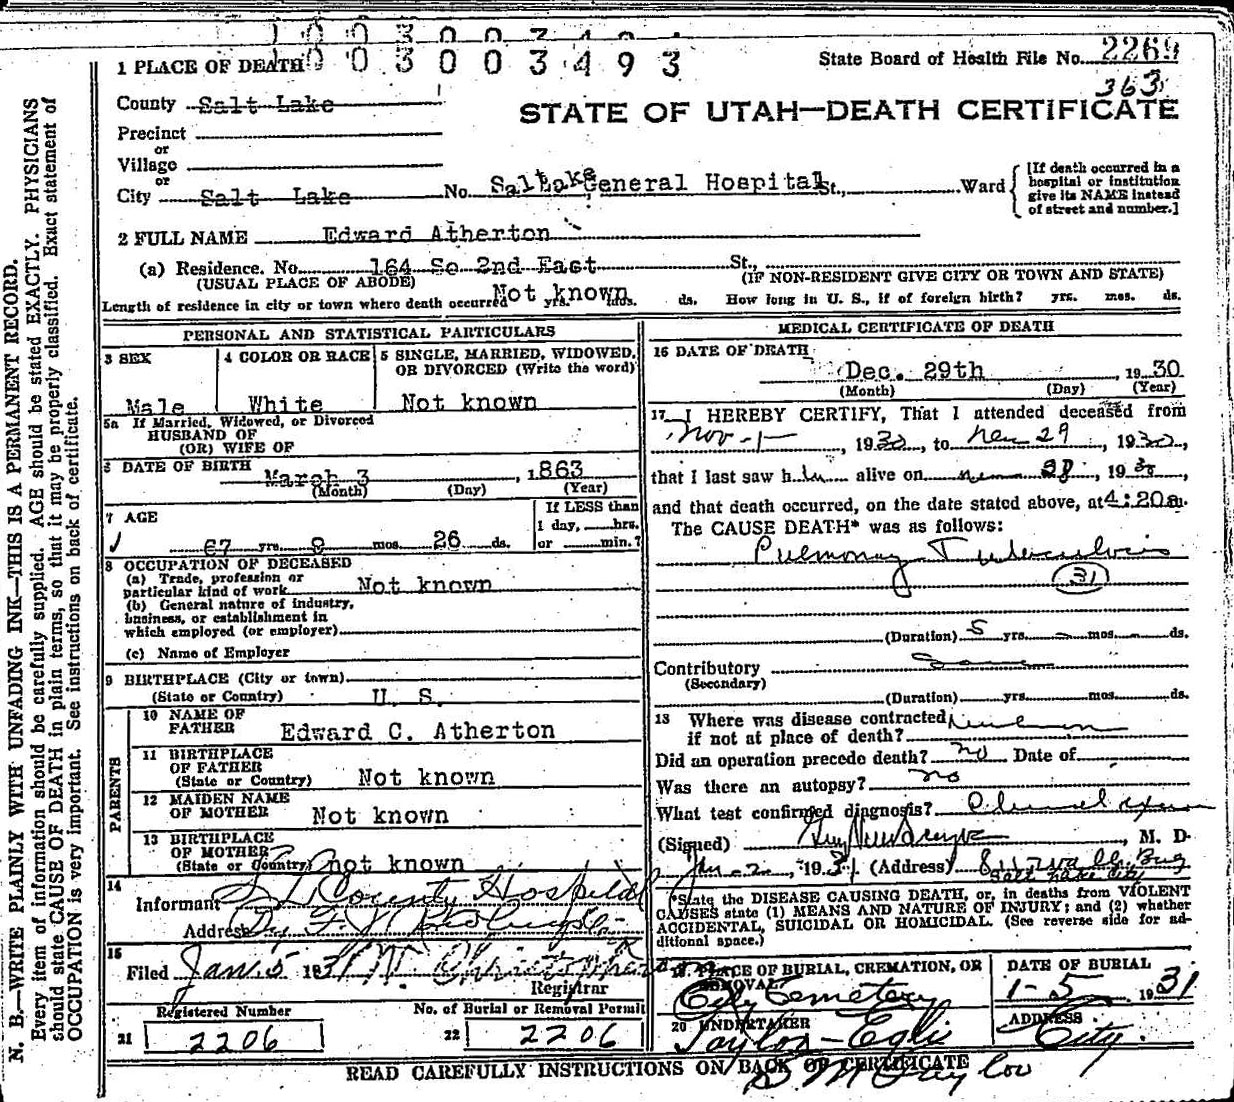 1 0 0 3 0 0 3 4 9 3
State Board of Health File No. 2269
1 PLACE OF DEATH
363
County Salt Lake
STATE OF UTAH—DEATH CERTIFICATE
Precinct
or
Village
or
City Salt Lake No. SaltLake General Hospital St., Ward
[If death occurred in a hospital or institution give its NAME instead of street and number.]
2 FULL NAME Edward Atherton
(a) Residence. No. 164 So 2nd East St.,
(USUAL PLACE OF ABODE) (IF NON-RESIDENT GIVE CITY OR TOWN AND STATE)
Length of residence in city or town where death occurred Not known yrs. mos. ds. How long in U. S., if of foreign birth? yrs. mos. ds.
PERSONAL AND STATISTICAL PARTICULARS
3 SEX
Male
4 COLOR OR RACE
White
5 SINGLE, MARRIED, WIDOWED,
OR DIVORCED (Write the word)
Not known
5a If Married, Widowed, or Divorced
HUSBAND OF
(OR) WIFE OF
6 DATE OF BIRTH March 3, 1863
(Month) (Day) (Year)
7 AGE
67 yrs. 9 mos. 26 ds.
If LESS than
1 day, hrs.
or min.?
8 OCCUPATION OF DECEASED
(a) Trade, profession or
particular kind of work Not known
(b) General nature of industry,
business, or establishment in
which employed (or employer)
(c) Name of Employer
9 BIRTHPLACE (City or town)
(State or Country) U. S.
PARENTS
10 NAME OF
FATHER Edward C. Atherton
11 BIRTHPLACE
OF FATHER
(State or Country) Not known
12 MAIDEN NAME
OF MOTHER Not known
13 BIRTHPLACE
OF MOTHER
(State or Country) not known
14
Informant S L County Hospital
Address By
15
Filed Jan. 5 1931
Registrar
Registered Number
21 2206
No. of Burial or Removal Permit
22 2206
MEDICAL CERTIFICATE OF DEATH
16 DATE OF DEATH
Dec. 29th, 1930
(Month) (Day) (Year)
17 I HEREBY CERTIFY, That I attended deceased from
Nov-1-, 1930, to 29, 1930,
that I last saw him alive on 28, 1930,
and that death occurred, on the date stated above, at 4:20a.
The CAUSE DEATH* was as follows:
Pulmonary Tuberculosis
31
(Duration) 5 yrs. - mos. - ds.
Contributory
(Secondary)
(Duration) yrs. mos. ds.
18 Where was disease contracted
if not at place of death?
Did an operation precede death? no Date of
Was there an autopsy? no
What test confirmed diagnosis?
(Signed), M. D.
Jan-2-, 1931 (Address)
Salt Lake City
*State the DISEASE CAUSING DEATH, or, in deaths from VIOLENT
CAUSES state (1) MEANS AND NATURE OF INJURY; and (2) whether
ACCIDENTAL, SUICIDAL OR HOMICIDAL. (See reverse side for ad-
ditional space.)
19 PLACE OF BURIAL, CREMATION, OR
REMOVAL
City Cemetery
DATE OF BURIAL
1-5 1931
20 UNDERTAKER
Taylor-Egli
ADDRESS
City.
READ CAREFULLY INSTRUCTIONS ON BACK OF CERTIFICATE
N. B.—WRITE PLAINLY WITH UNFADING INK—THIS IS A PERMANENT RECORD.
Every item of information should be carefully supplied. AGE should be stated EXACTLY. PHYSICIANS
should state CAUSE OF DEATH in plain terms, so that it may be properly classified. Exact statement of
OCCUPATION is very important. See instructions on back of certificate.